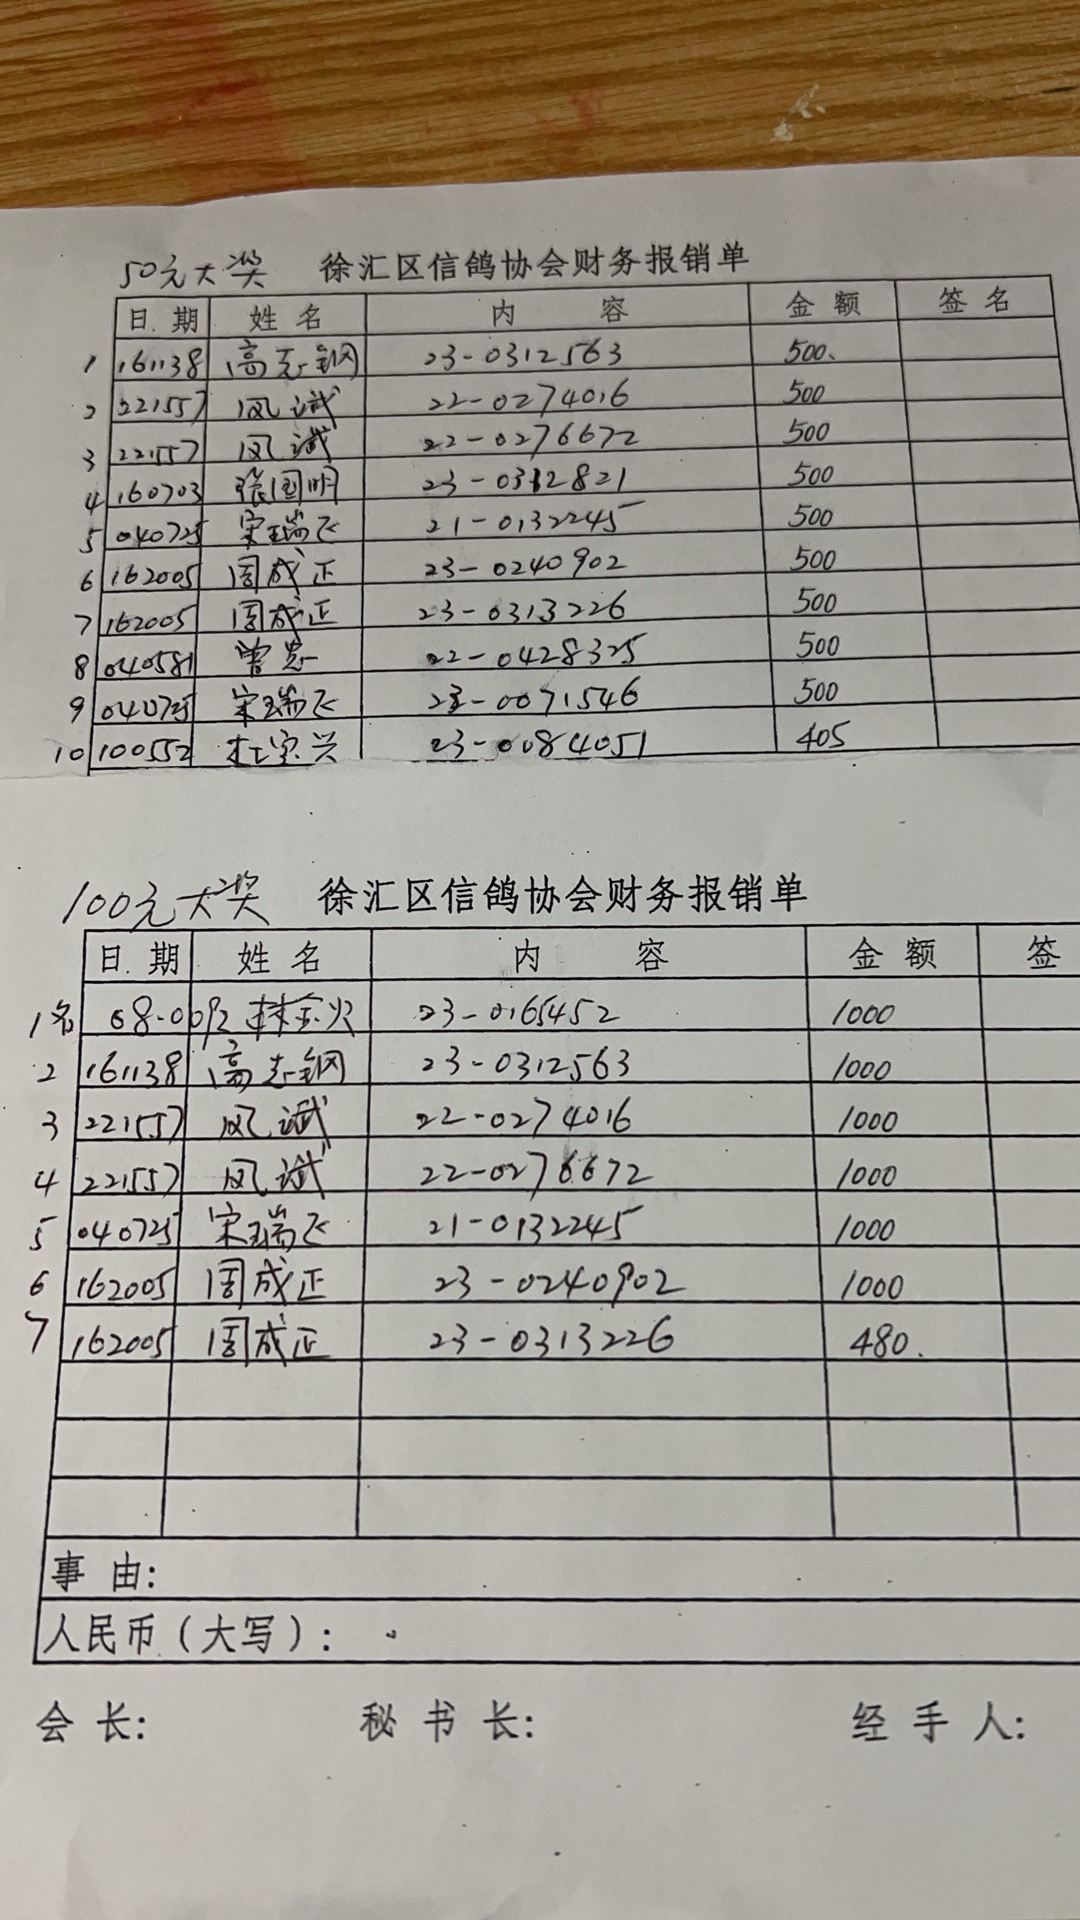 50元大奖 徐汇区信鸽协会财务报销单
日 期 姓 名 内 容 金 额 签 名
1 161138 高志钢 23-0312563 500.
2 221557 风斌 22-0274016 500
3 221557 风斌 22-0276672 500
4 160703 张国明 23-0312821 500
5 040725 宋瑞飞 21-0132245 500
6 162005 周成正 23-0240902 500
7 162005 周成正 23-0313226 500
8 040581 曾 22-0428325 500
9 040725 宋瑞飞 23-0071546 500
10 100552 杜宝兴 23-0084051 405
100元大奖 徐汇区信鸽协会财务报销单
日 期 姓 名 内 容 金 额 签
1名 08-0092 23-0165452 1000
2 161138 高志钢 23-0312563 1000
3 221557 风斌 22-0274016 1000
4 221557 风斌 22-0276672 1000
5 040725 宋瑞飞 21-0132245 1000
6 162005 周成正 23-0240902 1000
7 162005 周成正 23-0313226 480.
事 由:
人民币(大写):
会 长: 秘 书 长: 经 手 人: